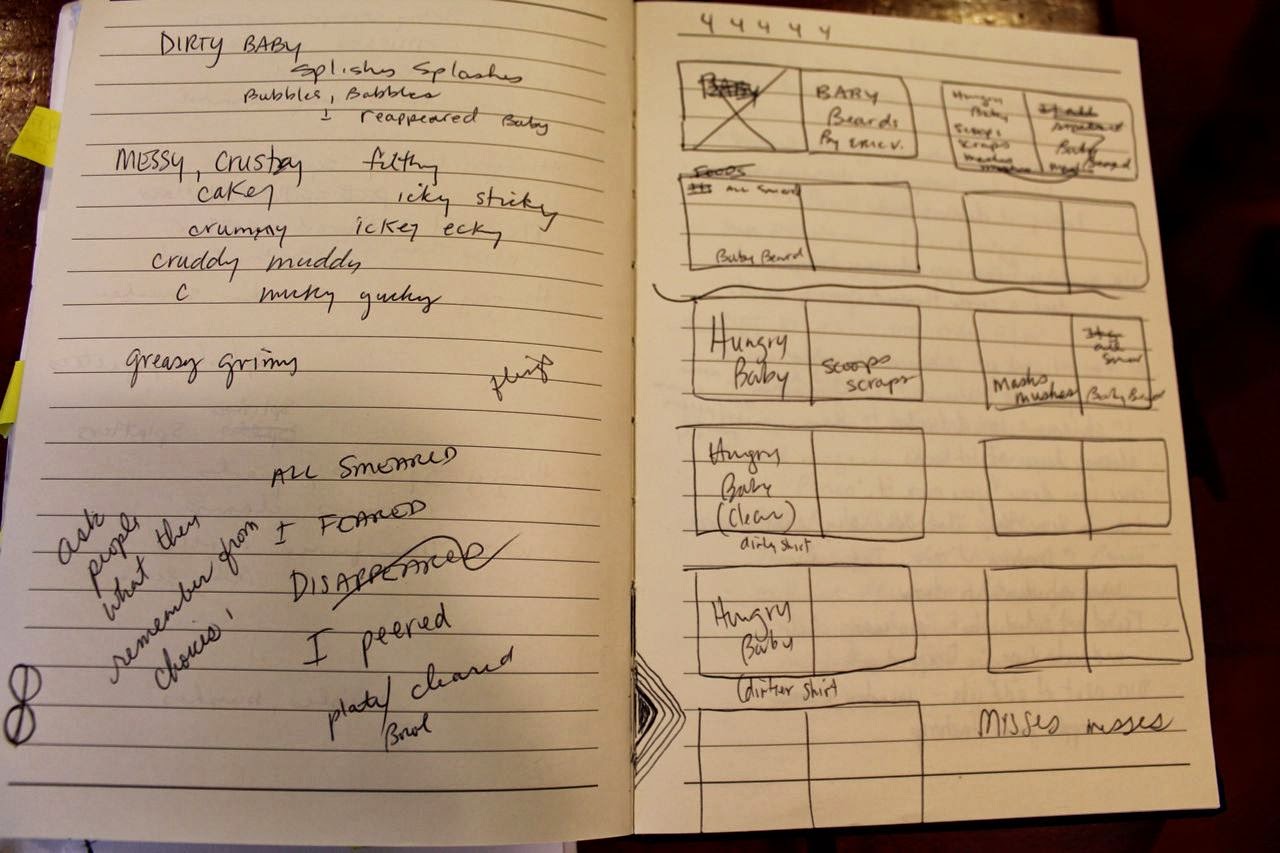 DIRTY BABY
Splishes Splashes
Bubbles, Babbles
I reappeared Baby
MESSY, Crusty filthy
cakey icky sticky
crummy ickey ecky
cruddy muddy
C mucky gucky
greasy grims
ALL SMEARED
I FEARED
DISAPPEARED
I peered
plate/ cleared
Bowl
ask
people
what they
remember from
choices!
8
4 4 4 4 4
BABY
BABY
Beards
By ERIC V.
Hungry
Baby
scoops
scraps
mashes
mushes
Baby
Beard
FOODS
All Smeared
Baby Beard
Hungry
Baby
scoops
scraps
Mashs
mushes
all
Smear
Baby Beard
Hungry
Baby
(clean)
dirty shirt
Hungry
Baby
(dirtier shirt
MISSES messes